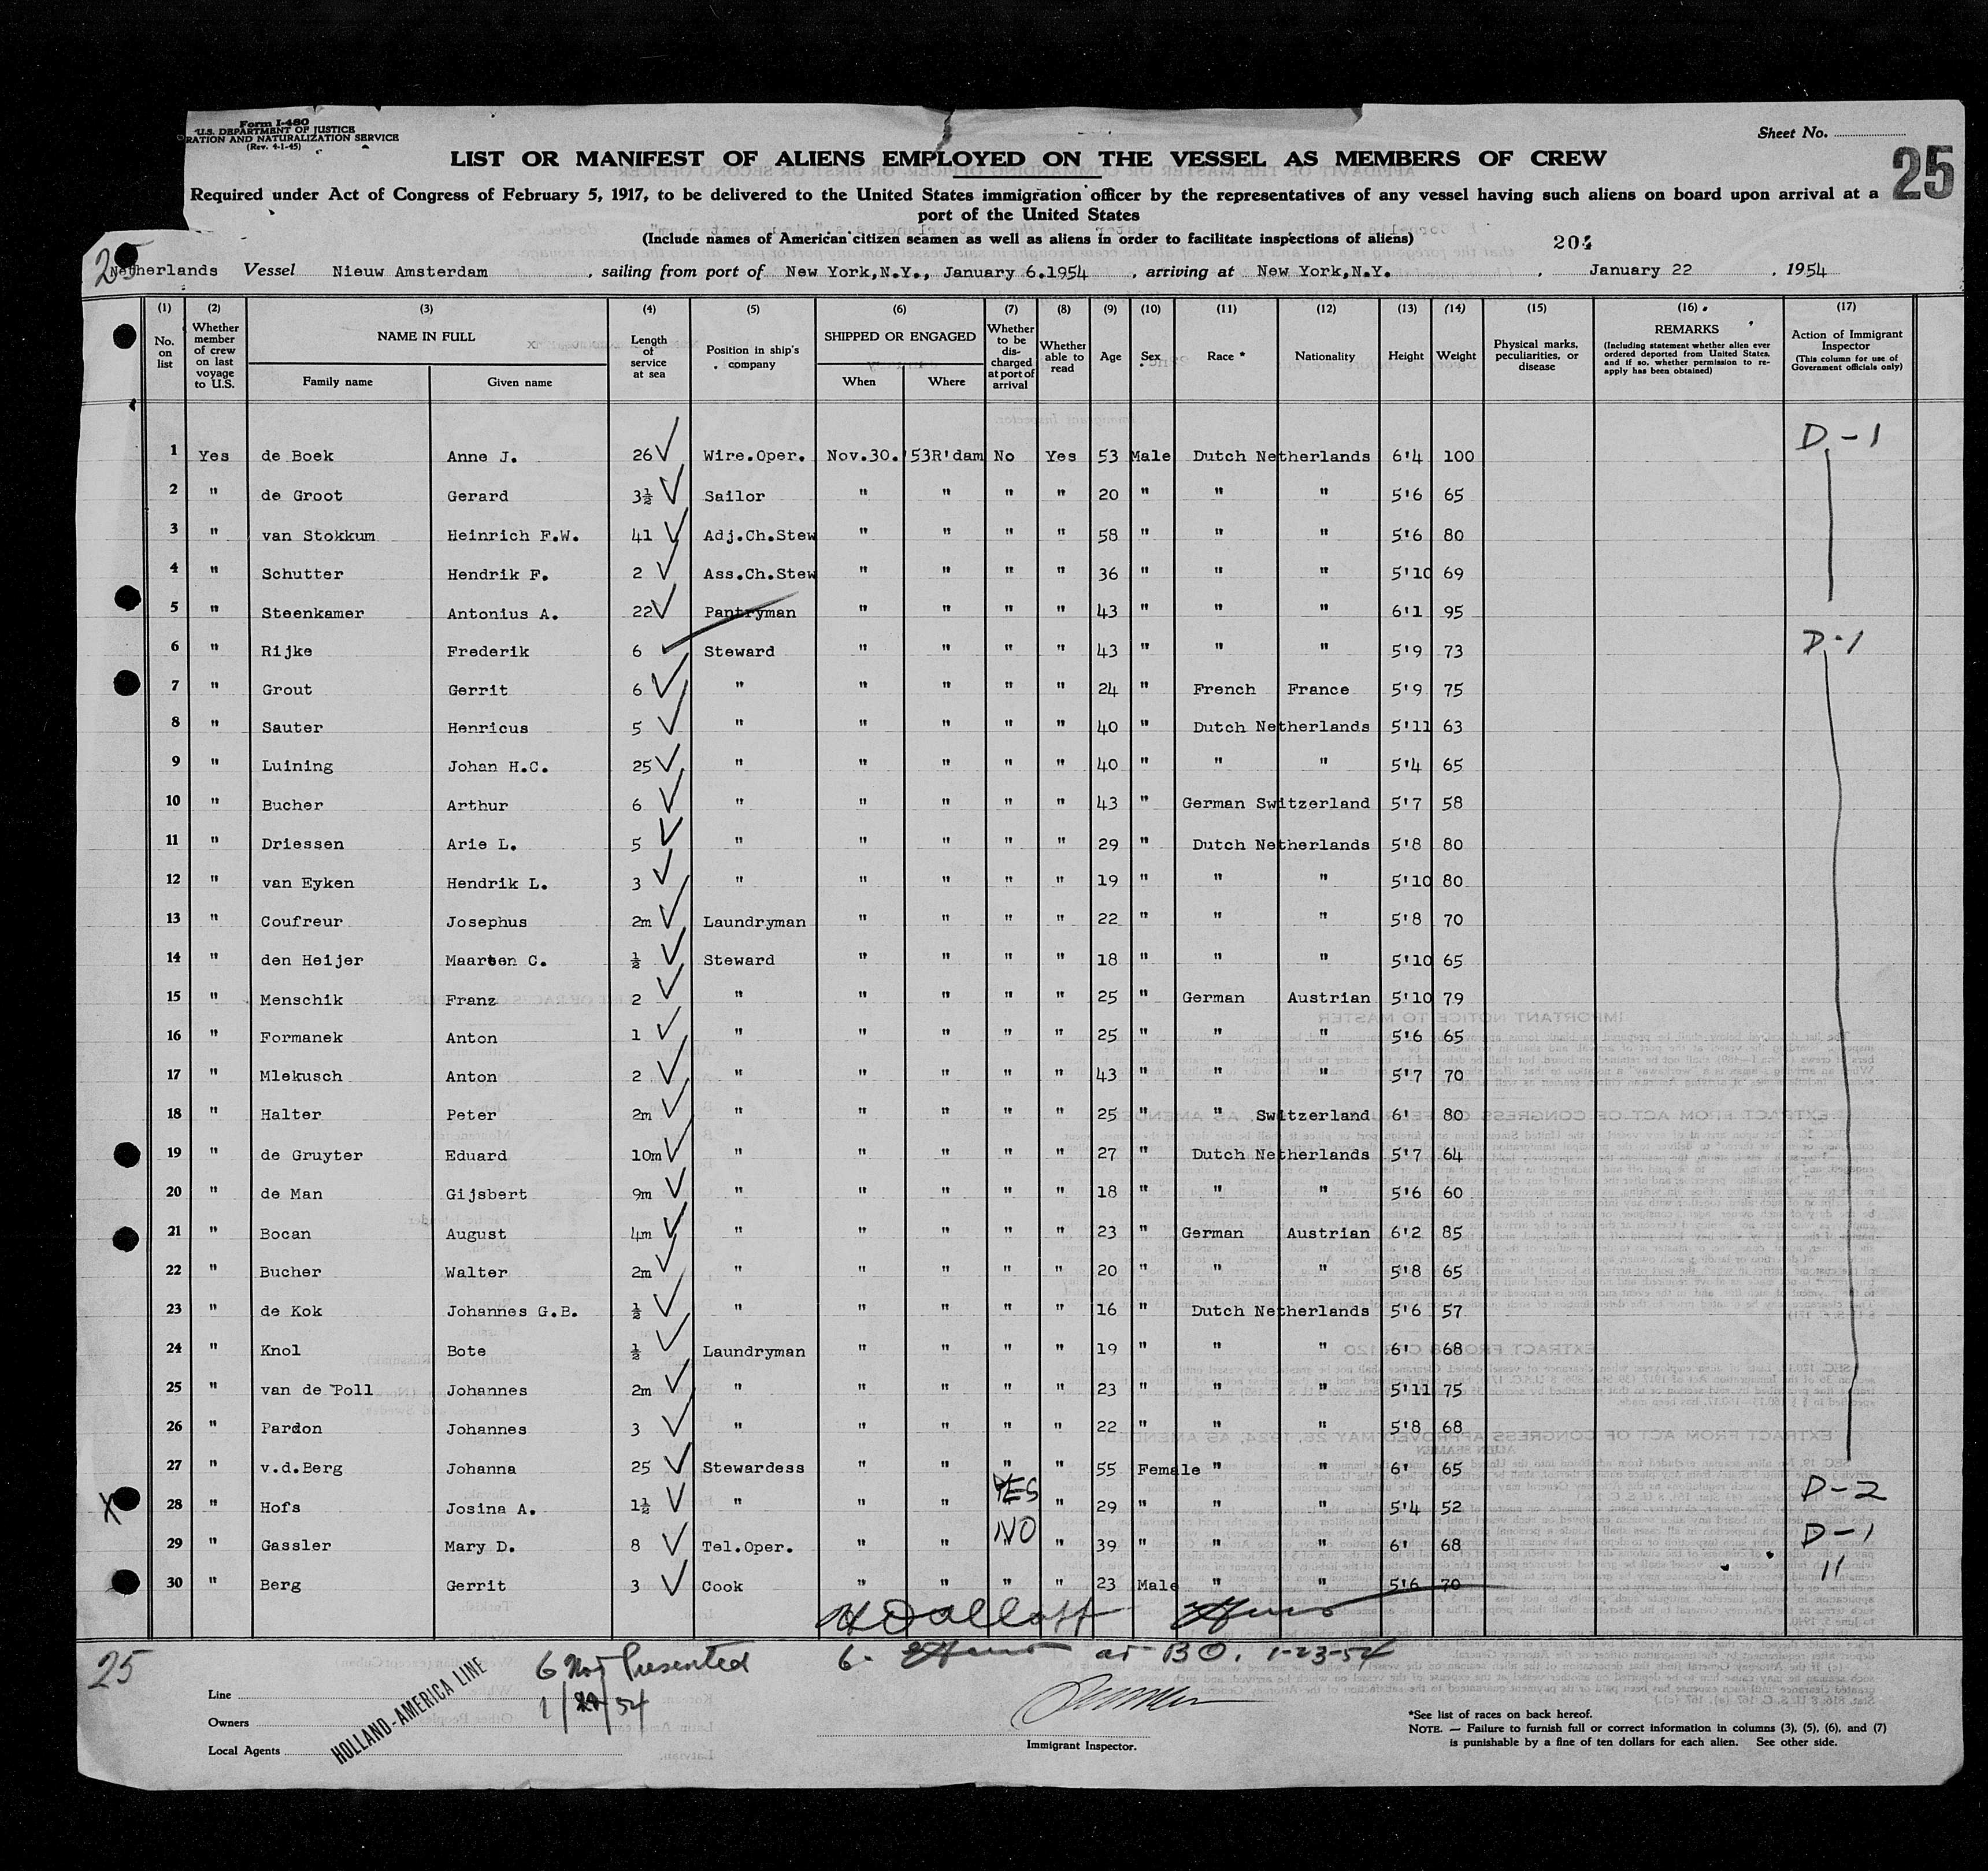 Form I-480
U.S. DEPARTMENT OF JUSTICE
RATION AND NATURALIZATION SERVICE
(Rev. 4-1-45)
Sheet No.
25
LIST OR MANIFEST OF ALIENS EMPLOYED ON THE VESSEL AS MEMBERS OF CREW
Required under Act of Congress of February 5, 1917, to be delivered to the United States immigration officer by the representatives of any vessel having such aliens on board upon arrival at a
port of the United States
(Include names of American citizen seamen as well as aliens in order to facilitate inspections of aliens)
204
25
Netherlands Vessel Nieuw Amsterdam, sailing from port of New York,N.Y., January 6.1954, arriving at New York,N.Y., January 22, 1954
(1) No. on list (2) Whether member of crew on last voyage to U.S. (3) NAME IN FULL Family name Given name (4) Length of service at sea (5) Position in ship's company (6) SHIPPED OR ENGAGED When Where (7) Whether to be discharged at port of arrival (8) Whether able to read (9) Age (10) Sex (11) Race * (12) Nationality (13) Height (14) Weight (15) Physical marks, peculiarities, or disease (16) REMARKS (Including statement whether alien ever ordered deported from United States, and if so, whether permission to re-apply has been obtained) (17) Action of Immigrant Inspector (This column for use of Government officials only)
1 Yes de Boek Anne J. 26 Wire.Oper. Nov.30.'53 R'dam No Yes 53 Male Dutch Netherlands 6'4 100 D-1
2 " de Groot Gerard 3½ Sailor " " " " 20 " " " 5'6 65
3 " van Stokkum Heinrich F.W. 41 Adj.Ch.Stew " " " " 58 " " " 5'6 80
4 " Schutter Hendrik F. 2 Ass.Ch.Stew " " " " 36 " " " 5'10 69
5 " Steenkamer Antonius A. 22 Pantryman " " " " 43 " " " 6'1 95
6 " Rijke Frederik 6 Steward " " " " 43 " " " 5'9 73 D-1
7 " Grout Gerrit 6 " " " " " 24 " French France 5'9 75
8 " Sauter Henricus 5 " " " " " 40 " Dutch Netherlands 5'11 63
9 " Luining Johan H.C. 25 " " " " " 40 " " " 5'4 65
10 " Bucher Arthur 6 " " " " " 43 " German Switzerland 5'7 58
11 " Driessen Arie L. 5 " " " " " 29 " Dutch Netherlands 5'8 80
12 " van Eyken Hendrik L. 3 " " " " " 19 " " " 5'10 80
13 " Coufreur Josephus 2m Laundryman " " " " 22 " " " 5'8 70
14 " den Heijer Maarten C. ½ Steward " " " " 18 " " " 5'10 65
15 " Menschik Franz 2 " " " " " 25 " German Austrian 5'10 79
16 " Formanek Anton 1 " " " " " 25 " " " 5'6 65
17 " Mlekusch Anton 2 " " " " " 43 " " " 5'7 70
18 " Halter Peter 2m " " " " " 25 " " Switzerland 6' 80
19 " de Gruyter Eduard 10m " " " " " 27 " Dutch Netherlands 5'7 64
20 " de Man Gijsbert 9m " " " " " 18 " " " 5'6 60
21 " Bocan August 4m " " " " " 23 " German Austrian 6'2 85
22 " Bucher Walter 2m " " " " " 20 " " " 5'8 65
23 " de Kok Johannes G.B. ½ " " " " " 16 " Dutch Netherlands 5'6 57
24 " Knol Bote ½ Laundryman " " " " 19 " " " 6' 68
25 " van de Poll Johannes 2m " " " " " 23 " " " 5'11 75
26 " Pardon Johannes 3 " " " " " 22 " " " 5'8 68
27 " v.d.Berg Johanna 25 Stewardess " " " " 55 Female " " 6' 65
X 28 " Hofs Josina A. 1½ " " " YES " 29 " " " 5'4 52 D-2
29 " Gassler Mary D. 8 Tel.Oper. " " NO " 39 " " " 6' 68 D-1
30 " Berg Gerrit 3 Cook " " " " 23 Male " " 5'6 70 "
25
6 Not Presented
1/22/54
6. at BO. 1-23-54
Line
Owners
Local Agents
HOLLAND-AMERICA LINE
Immigrant Inspector.
*See list of races on back hereof.
NOTE. — Failure to furnish full or correct information in columns (3), (5), (6), and (7)
is punishable by a fine of ten dollars for each alien. See other side.